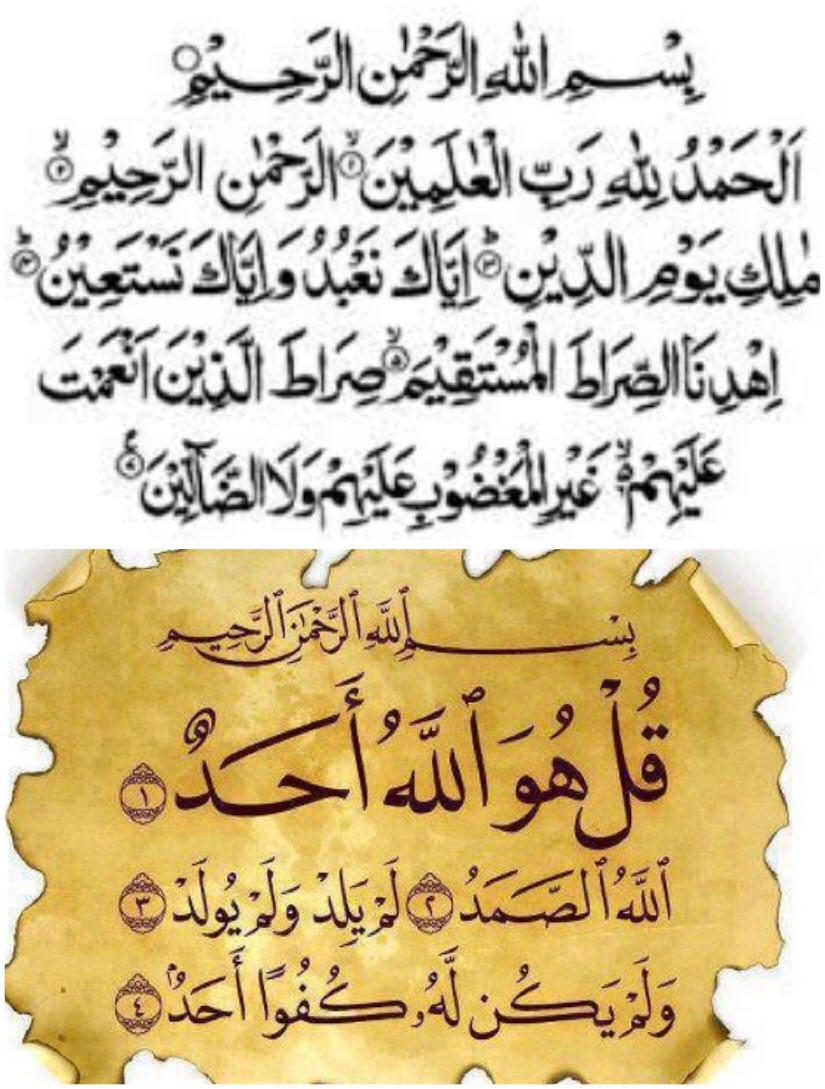 بِسْمِ اللهِ الرَّحْمٰنِ الرَّحِيْمِ ○
اَلْحَمْدُ لِلهِ رَبِّ الْعٰلَمِيْنَ ۙ﴿۱﴾ الرَّحْمٰنِ الرَّحِيْمِ ۙ﴿۲﴾
مٰلِكِ يَوْمِ الدِّيْنِ ؕ﴿۳﴾ اِيَّاكَ نَعْبُدُ وَاِيَّاكَ نَسْتَعِيْنُ ؕ﴿۴﴾
اِهْدِنَا الصِّرَاطَ الْمُسْتَقِيْمَ ۙ﴿۵﴾ صِرَاطَ الَّذِيْنَ اَنْعَمْتَ
عَلَيْهِمْ ۙ۬ غَيْرِ الْمَغْضُوْبِ عَلَيْهِمْ وَلَا الضَّآلِّيْنَ ﴿۷﴾
بِسْمِ ٱللَّهِ ٱلرَّحْمَٰنِ ٱلرَّحِيمِ
قُلْ هُوَ ٱللَّهُ أَحَدٌ ﴿١﴾
ٱللَّهُ ٱلصَّمَدُ ﴿٢﴾ لَمْ يَلِدْ وَلَمْ يُولَدْ ﴿٣﴾
وَلَمْ يَكُن لَّهُۥ كُفُوًا أَحَدٌۢ ﴿٤﴾